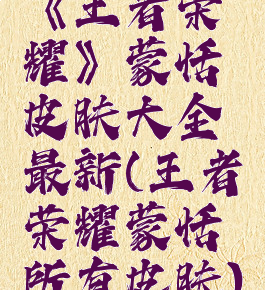 《王者荣
耀》蒙恬
皮肤大全
最新(王者
荣耀蒙恬
所有皮肤)